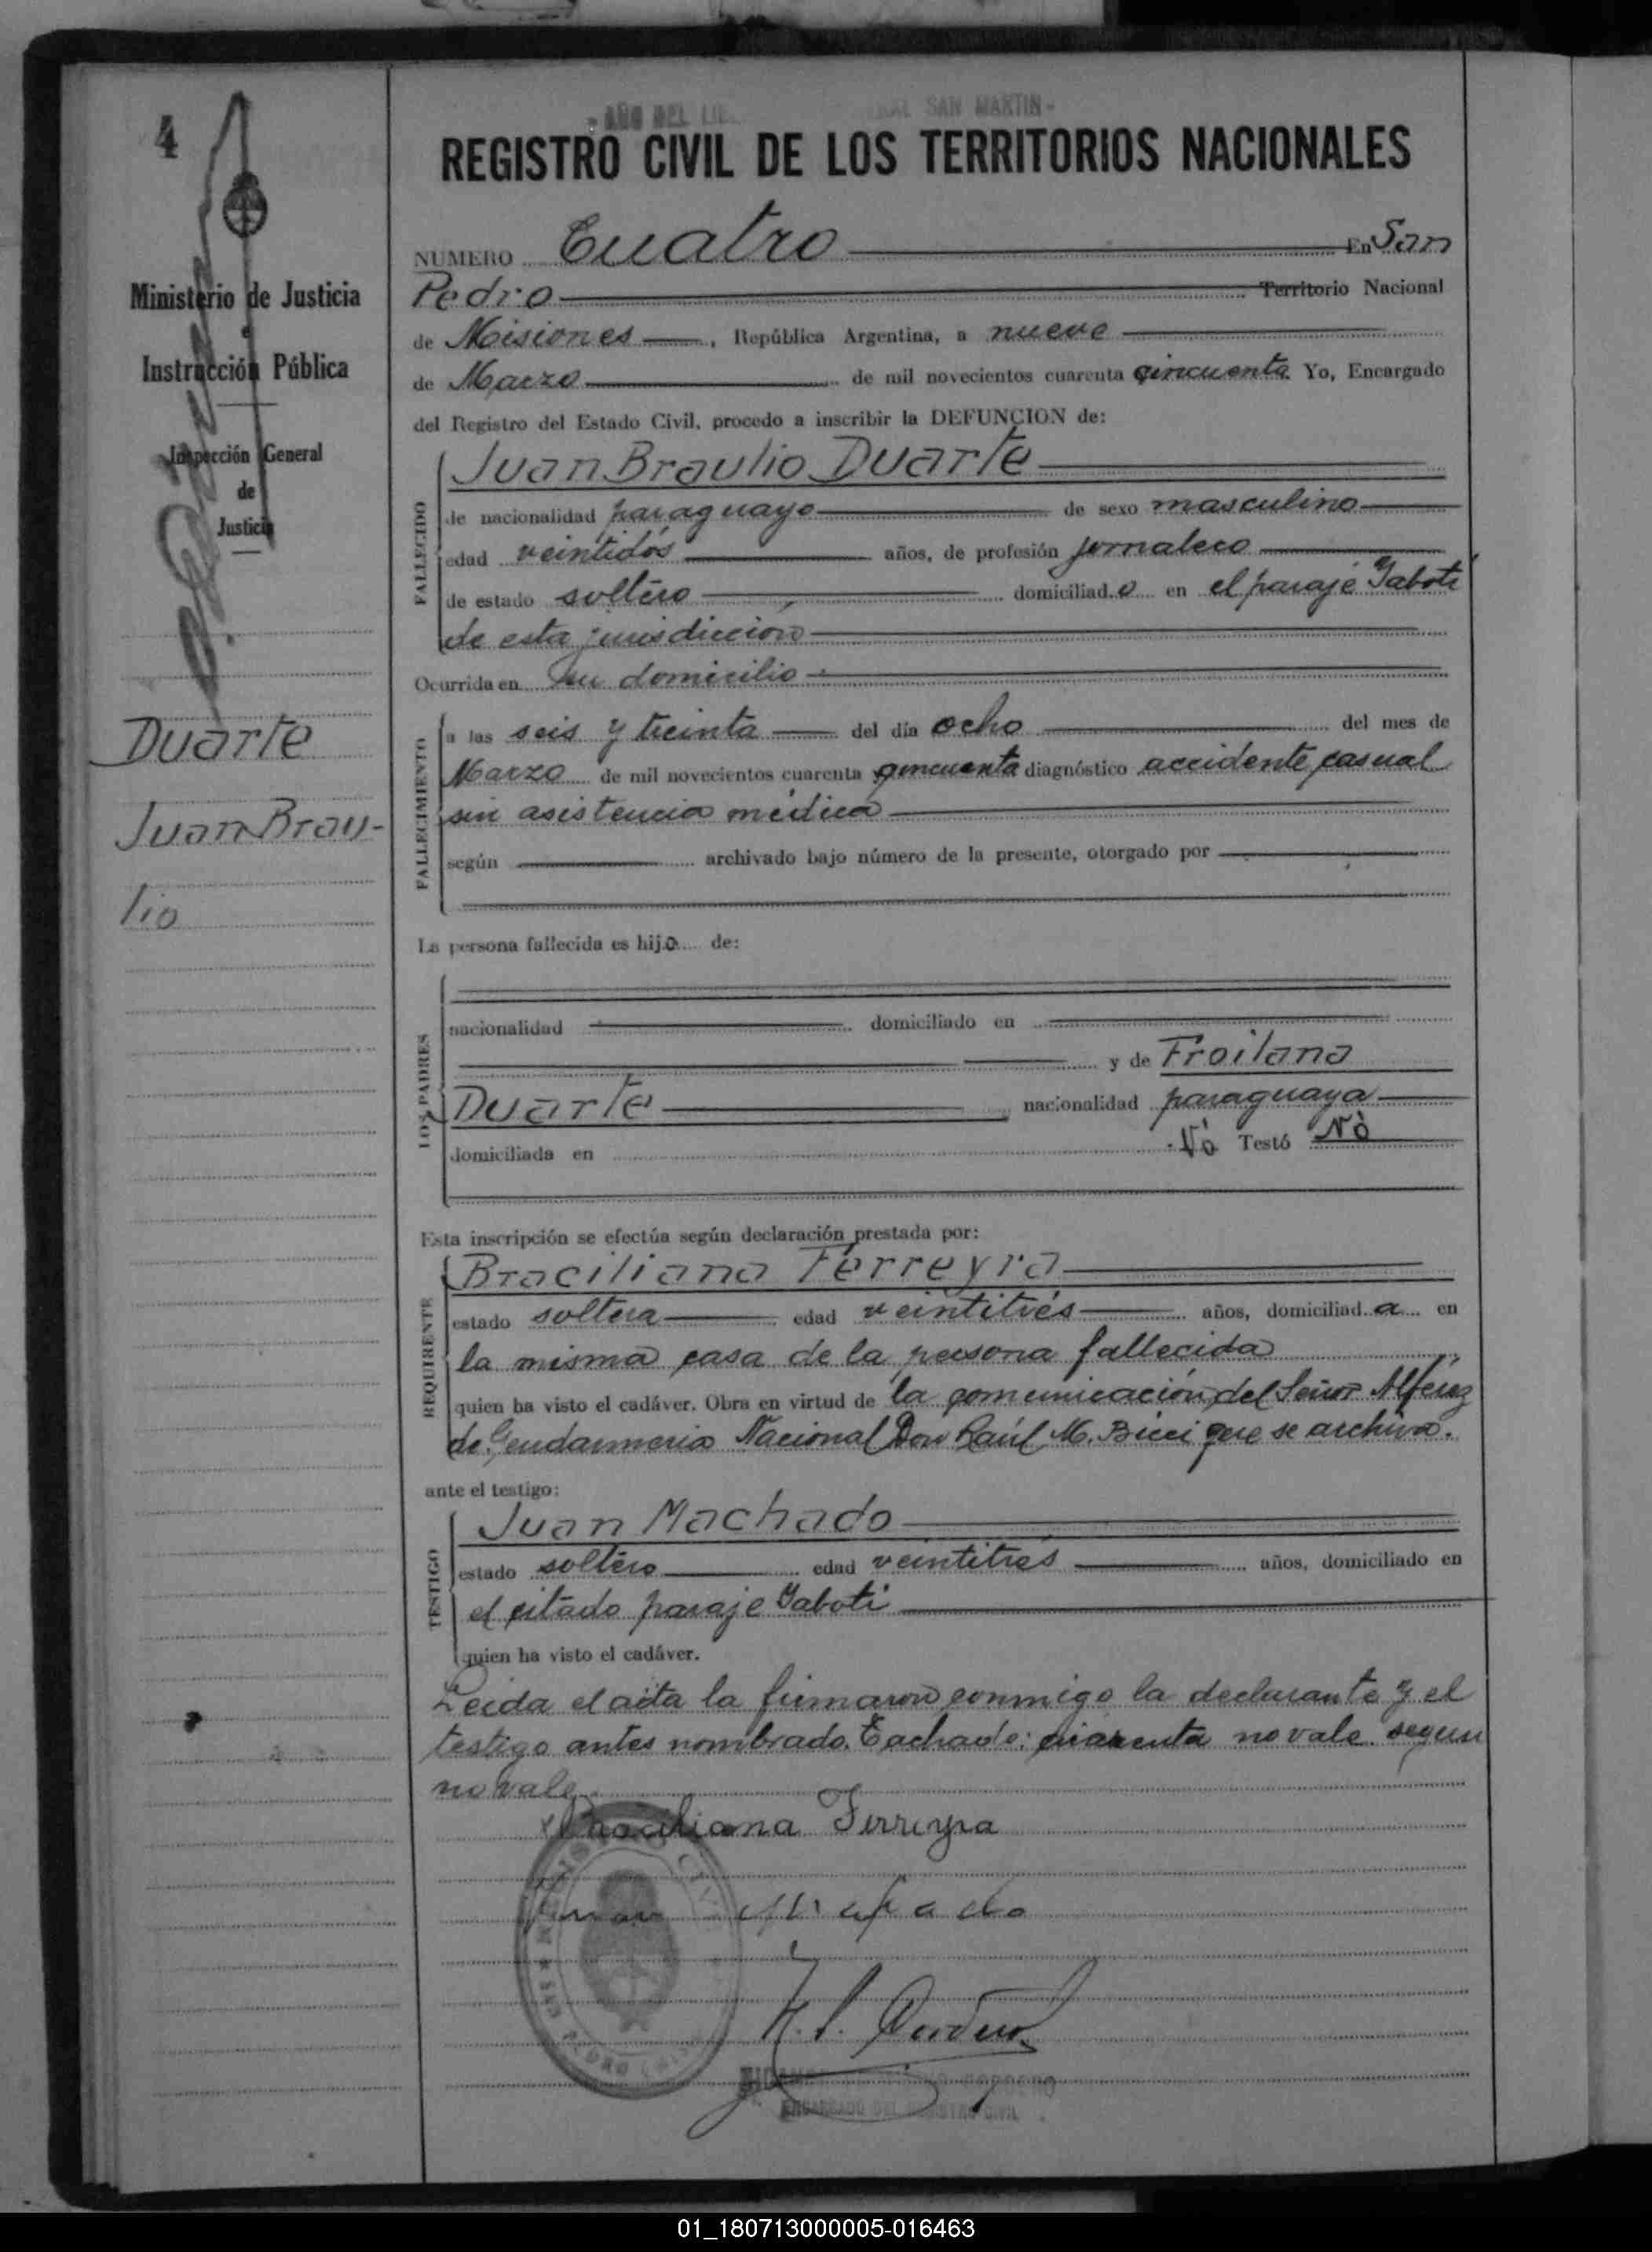 4
- AÑO DEL LIB
RAL SAN MARTIN -
REGISTRO CIVIL DE LOS TERRITORIOS NACIONALES
Ministerio de Justicia
e
Instrucción Pública
Inspección General
de
Justicia
Duarte
Juan Brau-
lio
NUMERO Cuatro En San
Pedro Territorio Nacional
de Misiones, República Argentina, a nueve
de Marzo de mil novecientos cuarenta cincuenta Yo, Encargado
del Registro del Estado Civil, procedo a inscribir la DEFUNCION de:
FALLECIDO
Juan Braulio Duarte
de nacionalidad paraguayo de sexo masculino
edad veintidós años, de profesión jornalero
de estado soltero domiciliado en el paraje Yabotí
de esta jurisdicción
Ocurrida en su domicilio
FALLECIMIENTO
a las seis y treinta del día ocho del mes de
Marzo de mil novecientos cuarenta cincuenta diagnóstico accidente casual
sin asistencia médica
según archivado bajo número de la presente, otorgado por
La persona fallecida es hijo de:
LOS PADRES
nacionalidad domiciliado en
y de Froilana
Duarte nacionalidad paraguaya
domiciliada en Nò Testó Nò
Esta inscripción se efectúa según declaración prestada por:
REQUIRENTE
Braciliana Ferreyra
estado soltera edad veintitrés años, domiciliada en
la misma casa de la persona fallecida
quien ha visto el cadáver. Obra en virtud de la comunicación del Señor Alferez
de Gendarmeria Nacional Don Raúl M. Bicci que se archiva.
ante el testigo:
TESTIGO
Juan Machado
estado soltero edad veintitrés años, domiciliado en
el citado paraje Yabotí
quien ha visto el cadáver.
Leida el acta la firmaron conmigo la declarante y el
testigo antes nombrado. Tachado: cuarenta no vale. segun
no vale
Braciliana Ferreyra
ENCARGADO DEL REGISTRO CIVIL
01_180713000005-016463